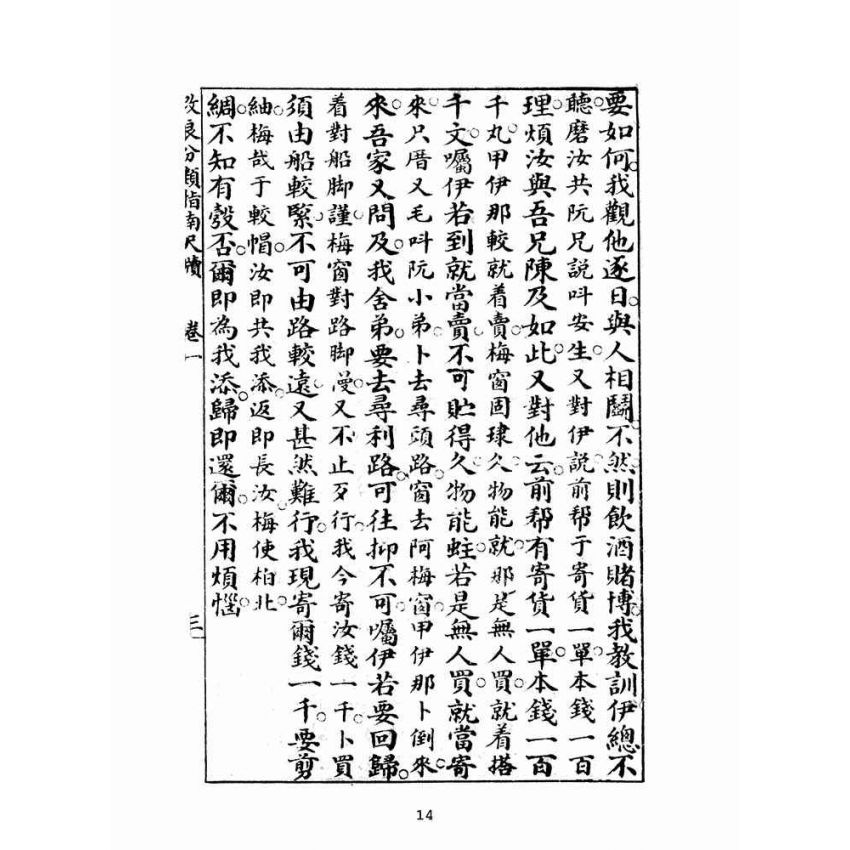 要如何。我觀他逐日。與人相鬪。不然則飲酒賭博。我教訓伊總不
聽。磨汝共阮兄說呌安生。又對伊説前帮于寄貨一單。本錢一百
理。煩汝與吾兄陳及如此。又對他云。前帮有寄貨一單。本錢一百
千丸。甲伊那較就着賣。梅窗固球久。物能就。那是無人買。就着搭
千文。囑伊若到就當賣。不可貯得久。物能蛀。若是無人買。就當寄
來。只厝又毛呌阮小弟。卜去尋頭路。窗去阿梅窗。甲伊那卜倒來。
來。吾家又問及。我舍弟。要去尋利路。可往抑不可。囑伊若要回歸。
着對船脚謹。梅窗對路脚漫。又不止歹行。我今寄汝錢一千。卜買
須由船較緊。不可由路較遠。又甚然難行。我現寄爾錢一千。要剪
紬。梅哉于較帽。汝即共我添。返即長汝。梅使柏北。
綢。不知有彀否。爾即為我添。歸即還爾。不用煩惱。
改良分類指南尺牘 卷一 三
14